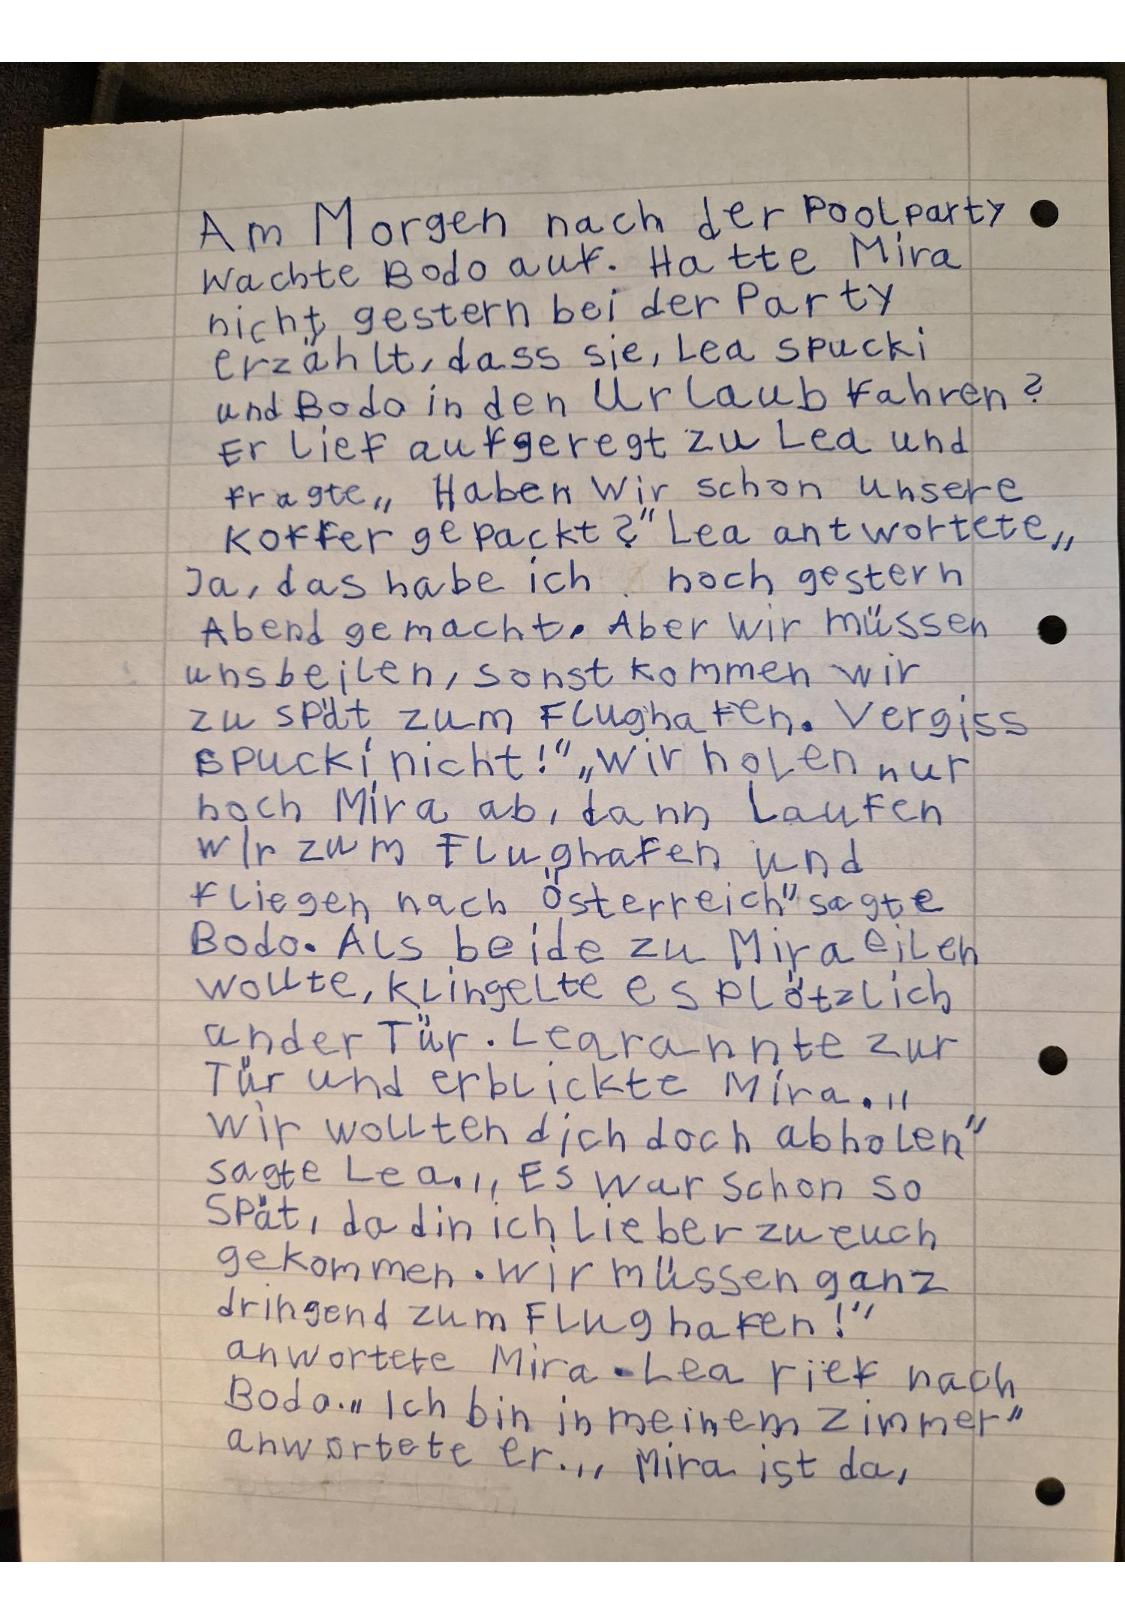 Am Morgen nach der Poolparty
wachte Bodo auf. Hatte Mira
nicht gestern bei der Party
erzählt, dass sie, Lea spucki
und Bodo in den Urlaub fahren?
Er lief aufgeregt zu Lea und
fragte„ Haben wir schon unsere
Koffer gepackt?" Lea antwortete„
Ja, das habe ich noch gestern
Abend gemacht. Aber wir müssen
uns beilen, sonst kommen wir
zu spät zum Flughafen. Vergiss
spucki nicht!" „Wir holen nur
noch Mira ab, dann laufen
wir zum Flughafen und
fliegen nach Österreich" sagte
Bodo. Als beide zu Mira eilen
wollte, klingelte es plötzlich
an der Tür. Lea rannte zur
Tür und erblickte Mira. „
Wir wollten dich doch abholen"
sagte Lea. „ Es war schon so
spät, da din ich lieber zu euch
gekommen. Wir müssen ganz
dringend zum Flughafen!"
anwortete Mira. Lea rief nach
Bodo. „ Ich bin in meinem Zimmer"
anwortete er. „ Mira ist da,